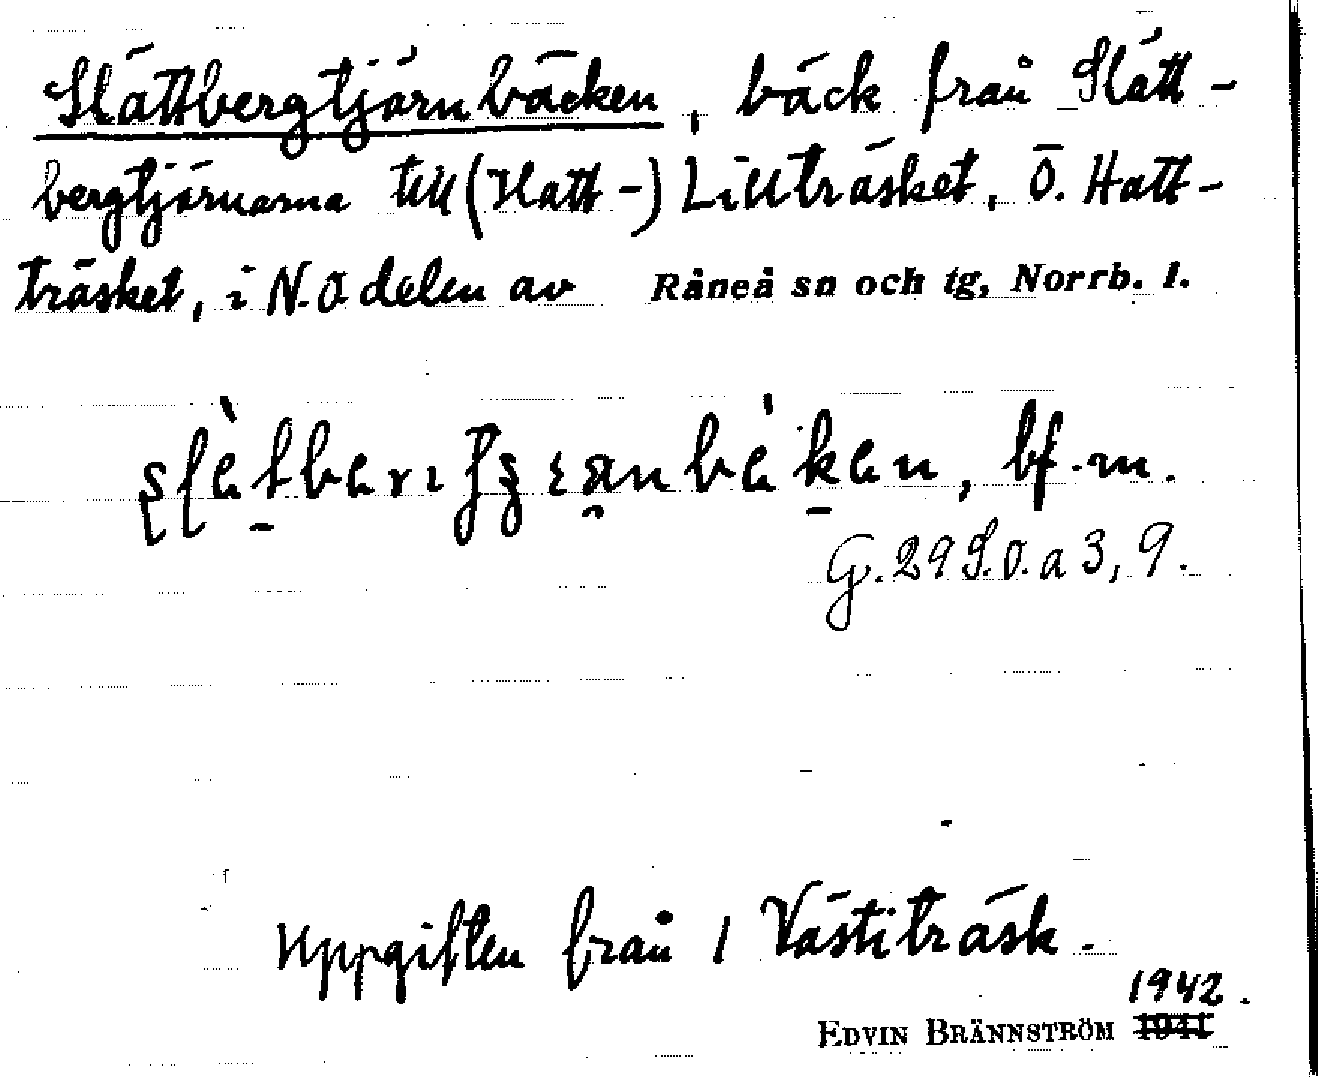 Slättbergtjärnbäcken, bäck från Slätt-
bergtjärnarna till (Hatt-) Lillträsket, Ö. Hatt-
träsket, i N.O delen av Råneå sn och tg, Norrb. l.
bf. m.
G. 29 S.O. a 3, 9.
Uppgiften från 1 Västiträsk.
1942.
EDVIN BRÄNNSTRÖM 1941